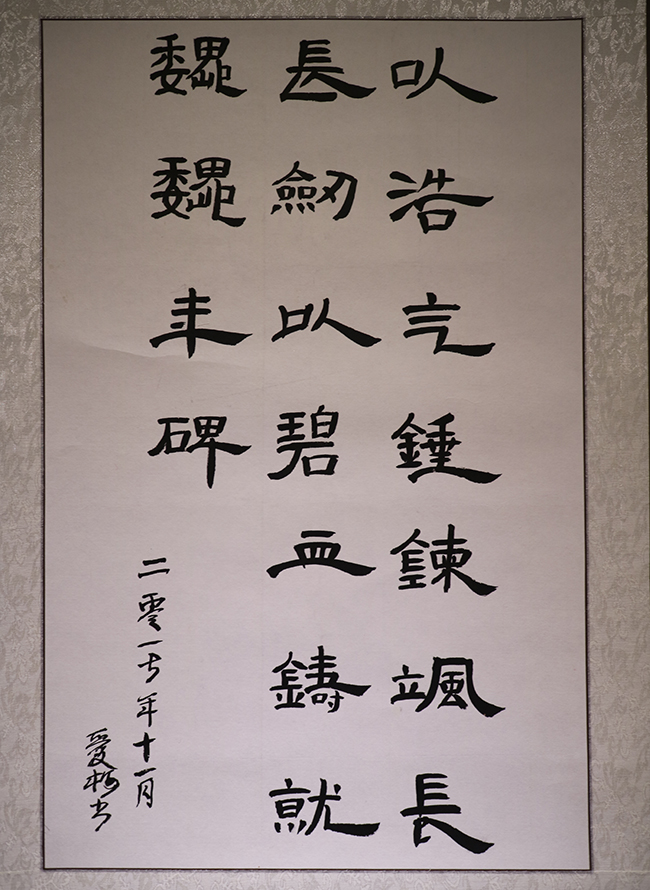 以浩气錘鍊颯長
長劒以碧血鑄就
巍巍丰碑
二零一七年十一月
愛书